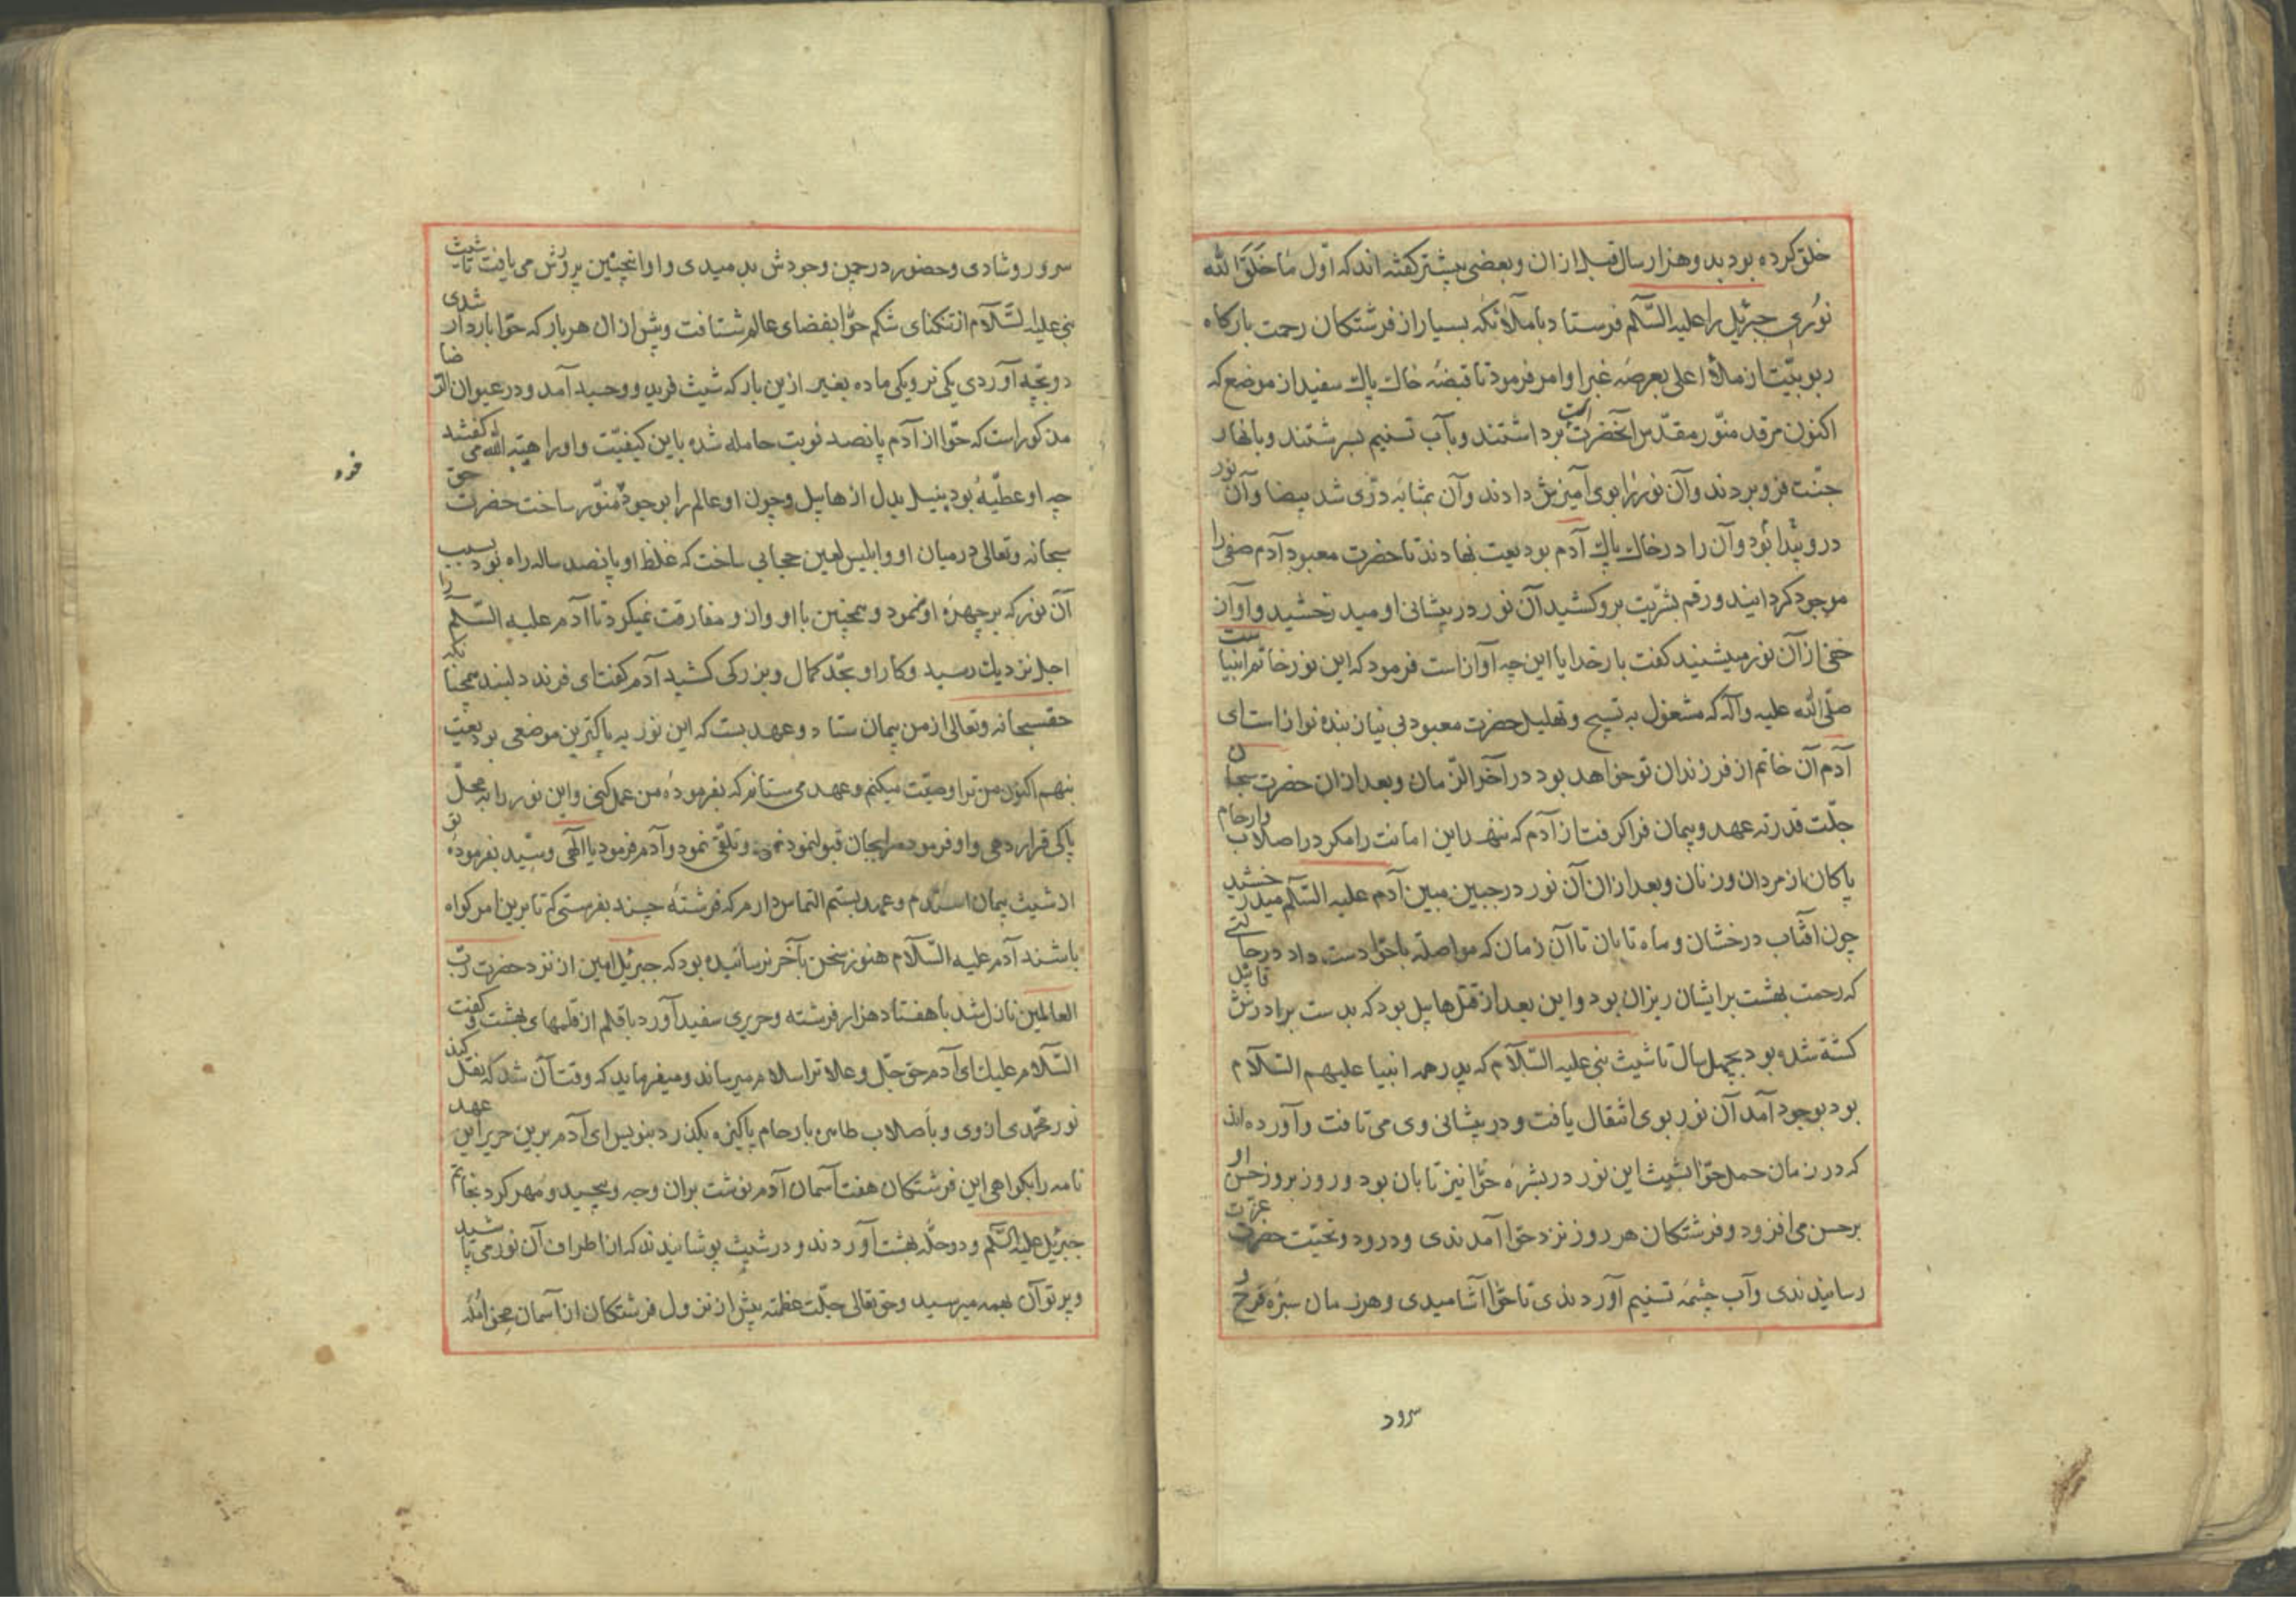 خلق کرده بود بدو هزار سال قبل ازان و بعضی بیشتر گفته اند که اول ما خلق الله
نوری جبرئیل را علیه السّلم فرستاد با ملائکه بسیار از فرشتکان رحمت بارکاه
ربوبیّت از ملاء اعلی بعرصهٔ غبرا و امر فرمود تا قبضهٔ خاك پاك سفید از موضع که
اکنون مرقد منوّر مقدّس آنحضرت است برداشتند و بآب تسنیم بسرشتند و بانهار
جنّت فرو بردند و آن نور را بوی آمیزش دادند و آن بمثابه درّی شد بیضا و آن نور
درو پیدا بود و آن را در خاك پاك آدم بودیعت نهادند تا حضرت معبود آدم صفی را
موجود کردانید و رقم بشریت برو کشید آن نور در پیشانی او میدرخشید و آواز
خفی از آن نور میشنید کفت بار خدایا این چه آوازاست فرمود که این نور خاتم انبیاست
صلّی الله علیه وآله که مشغول به تسبیح و تهلیل حضرت معبود بی نیاز بنده نوازاست ای
آدم آن خاتم از فرزندان تو خواهد بود در آخر الزّمان و بعد ازان حضرت سبحان
جلّت قدرته عهد و پیمان فرا کرفت از آدم که ننهد این امانت را مکر در اصلاب و ارحام
پاکان از مردان و زنان و بعد ازان آن نور در جبین مبین آدم علیه السّلم میدرخشید
چون آفتاب درخشان و ماه تابان تا آن زمان که مواصله با حوّا دست داد در حالتی
که رحمت بهشت بر ایشان ریزان بود و این بعد از قتل هابیل بود که بدست برادرش قابیل
کشته شده بود بچهل سال تا شیث نبی علیه السّلام که پدر همه انبیا علیهم السّلام
بود بوجود آمد آن نور بوی انتقال یافت و در پیشانی وی می تافت و آورده اند
که در زمان حمل حوّا بشیث این نور در بشرهٔ حوّا نیز تابان بود و روز بروز حسن او
بر حسن می افزود و فرشتکان هر روز نزد حوّا آمدندی و درود و تحیّت حضرت عزت
رسانیدندی و آب چشمه تسنیم آوردندی تا حوّا آشامیدی و هر زمان سبزهٔ فرح و
سرود
سرور و شادی و حضور در چمن وجودش بدمیدی و او اینچنین پرورش می یافت تا شیث
نبی علیه السّلام از تنکنای شکم حوّا بفضای عالم شتافت و پیش ازان هر بار که حوّا باردار شدی
دو بچّه آوردی یکی نر و یکی ماده بغیر ازین بار که شیث فرید و وحید آمد و در عیون الرضا
مذکوراست که حوّا از آدم پانصد نوبت حامله شده باین کیفیّت و او را هبة الله می کفتند
چه او عطیّهٔ بود بنیل بدل از هابیل و چون او عالم را بوجود منوّر ساخت حضرت حق
سبحانه و تعالی درمیان او و ابلیس لعین حجابی ساخت که غلظ او پانصد ساله راه بود بسبب
آن نور که بر چهرهٔ او می نمود و همچنین با او و ازو مفارقت نمیکرد تا آدم علیه السّلم را
اجل نزدیك رسید و کار او بحدّ کمال و بزرکی کشید آدم کفت ای فرزند دلبند همچنانکه
حقسبحانه و تعالی از من پیمان ستاد و عهد بست که این نور به پاکترین موضعی بودیعت
بنهم اکنون من ترا وصیّت میکنم و عهد می ستانم که بفرمودهٔ من عمل کنی و این نور را به محلّ
پاکی قرار دهی و او فرموده را بجان قبول نمود و تلقّی نمود و آدم فرمود یا الهی و سیّد بفرمودهٔ تو
از شیث پیمان استدم و عهد بستم التماس دارم که فرشتهٔ چند بفرستی که تا برین امر کواه
باشند آدم علیه السّلام هنوز سخن بآخر نرسانیده بود که جبرئیل امین از نزد حضرت ربّ
العالمین نازل شد با هفتاد هزار فرشته و حریری سفید آورد با قلم از قلمهای بهشت و کفت
السّلام علیك ای آدم حق جلّ و علا ترا سلام میرساند و میفرماید که وقت آن شد که نقل کند
نور محمّدی از وی و باصلاب طاهره بارحام پاکیزه بکذرد بنویس ای آدم برین حریر این عهد
نامه را بکواهی این فرشتکان هفت آسمان آدم نوشت بران وجه و پیچید و مهر کرد بخاتم
جبرئیل علیه السّلم و دو حلّه بهشت آوردند و در شیث پوشانیدند که از اطراف آن نور می تابید
و پرتو آن بهمه میرسید و حق تعالی جلّت عظمته پیش از نزول فرشتکان از آسمان